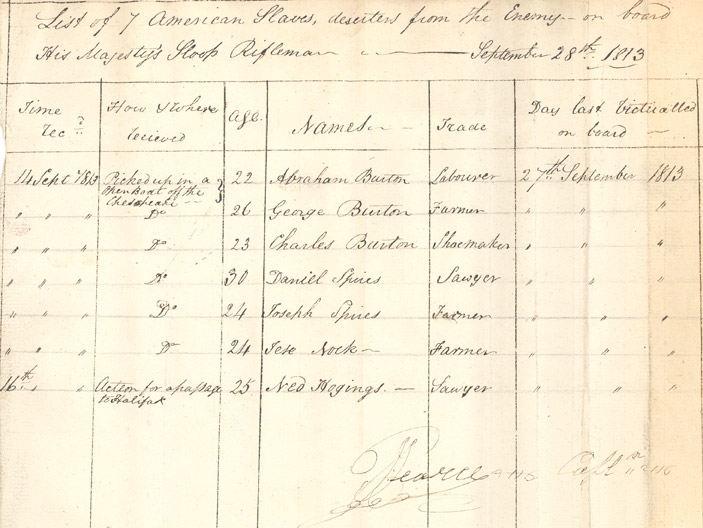 List of 7 American Slaves, deserters from the Enemy – on board
His Majesty's Sloop Rifleman — September 28th 1813
Time Rec'd How & Where recieved Age. Names Trade Day last Victualled on board
14 Sept 1813 Picked up in a Open Boat off the Chesapeake 22 Abraham Burton Labourer 27th September 1813
" " " Do 26 George Burton Farmer " " "
" " " Do 23 Charles Burton Shoemaker " " "
" " " Do 30 Daniel Spires Sawyer " " "
" " " Do 24 Joseph Spires Farmer " " "
" " " Do 24 Jese Nock – Farmer " " "
16th " " for a passage to Halifax 25 Ned Hogings. – Sawyer " " "
Pearce